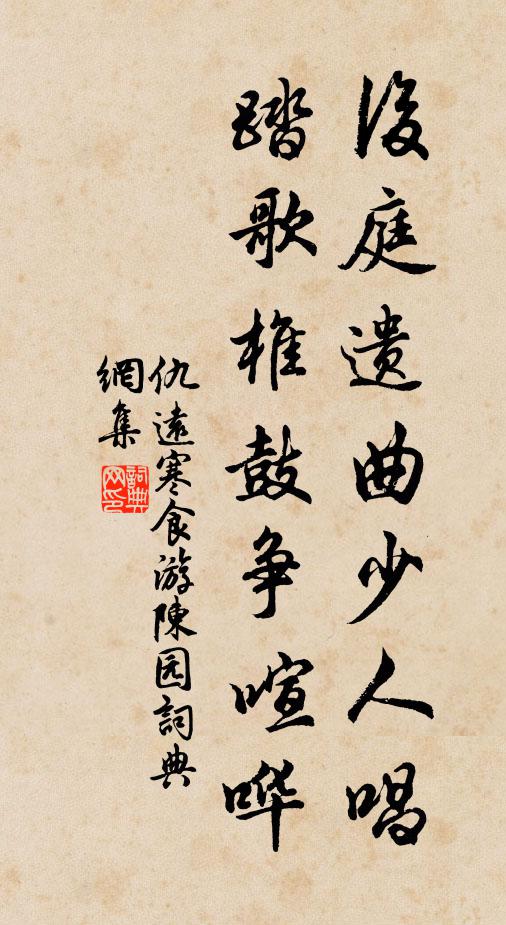 後庭遺曲少人唱
踏歌椎鼓争喧哗
仇遠寒食游陳园詞典
網集
詞典
网印